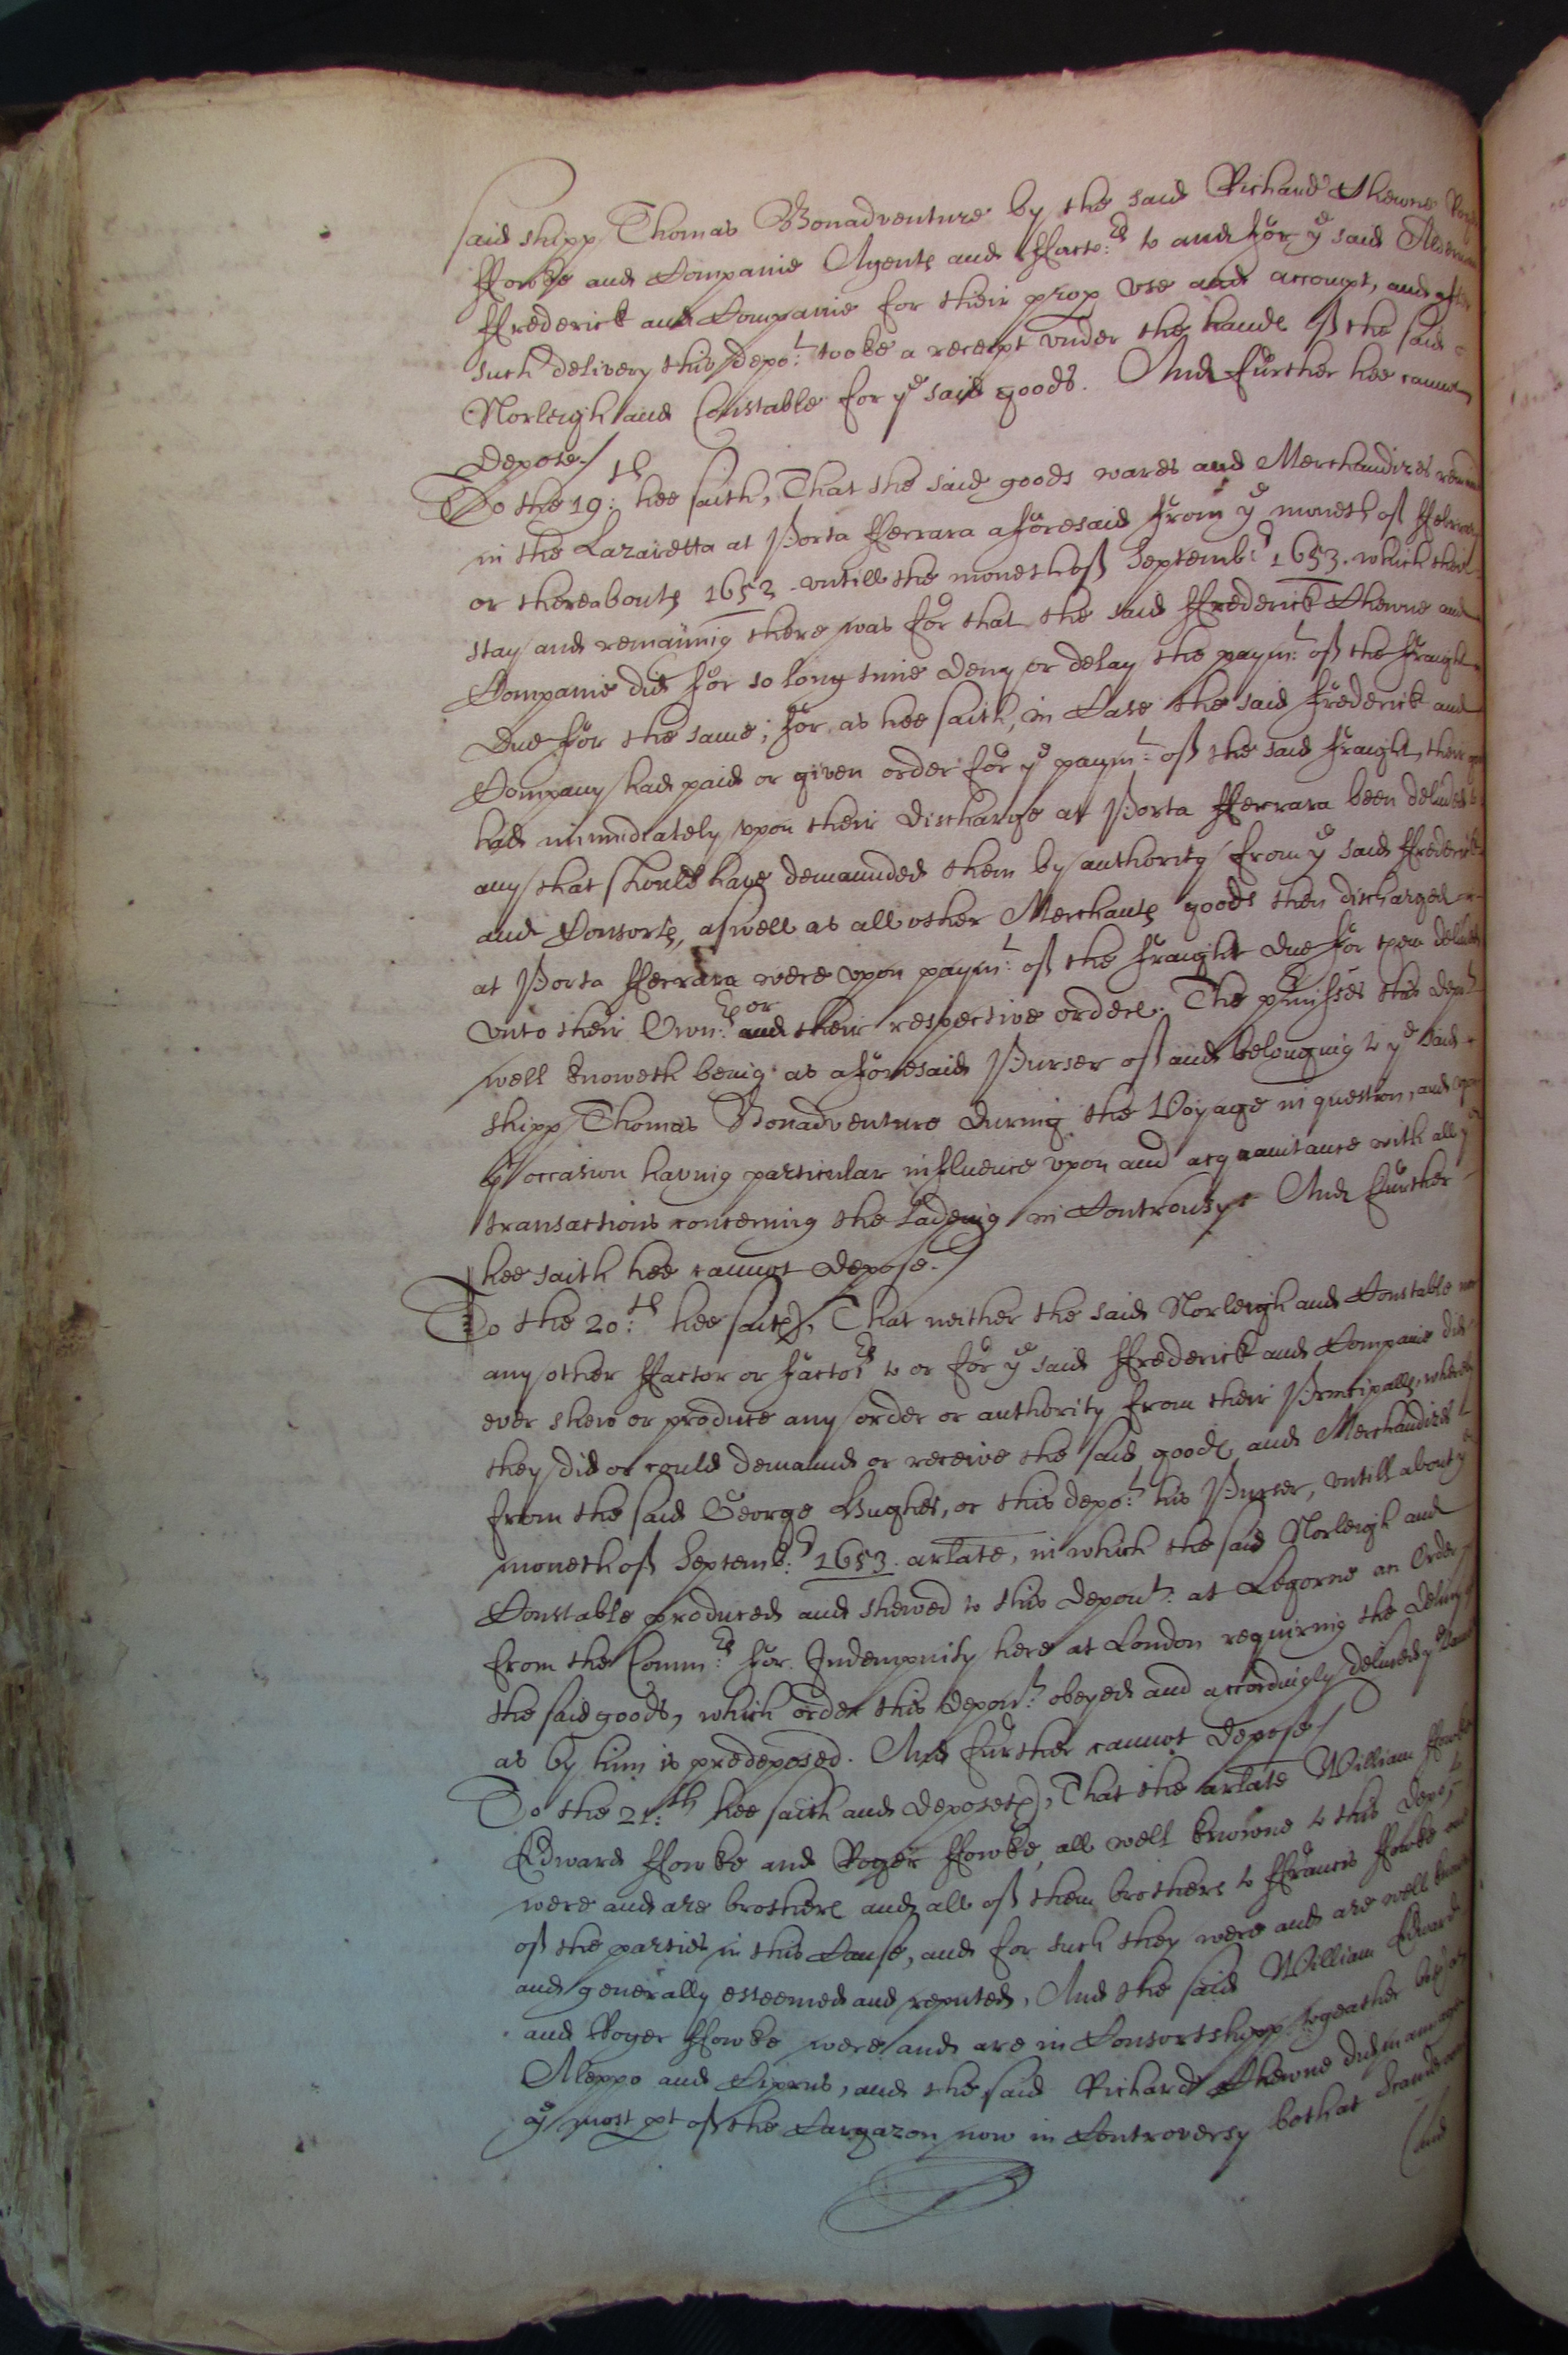 said shipp Thomas Bonadventure by the said Richard Chewne
ffowke and Companie Agents and ffacto:rs to and for ye said Alderman
ffrederick and Companie for their prop use and accompt, and after
such delivery this depo:t tooke a receipt under the hands of the said
Norleigh and Constable for ye said goods. And further hee cannot
depose./
To the 19:th hee saith, That the said goods wares and Merchandizes
in the Lazaretta at Porta fferrara aforesaid from ye moneth of
or thereabouts 1652 untill the moneth of Septemb:r 1653. which their
stay and remayning there was for that the said ffrederick Chewne and
Companie did for so long time deny or delay the paym:t of the fraight
due for the same; for as hee saith, in Case the said ffrederick and
Company had paid or given order for ye paym:t of the said fraight, their
had immediately upon their discharge at Porta fferrara been
any that should have demaunded them by authority from ye said ffrederick
and Consorts, aswell as all other Merchants goods then discharged
at Porta fferrara were upon paym:t of the fraight due for them
unto their Own:rs or and their respective orders. The p̃misses this depo:t
well knoweth being as aforesaid Purser of and belonging to ye said
shipp Thomas Bonadventure during the Voyage in question, and upon
yt occasion having particular influence upon and acquaintance with all ye
transactions concerning the Ladeing in Controvsy. And further
hee saith hee cannot depose./
To the 20:th hee saith, That neither the said Norleigh and Constable nor
any other ffactor or factors to or for ye said ffrederick and Companie did
ever shew or produce any order or authority from their Principalls, whereby
they did or could demaund or receive the said goods and Merchandizes
from the said George Hughes, or this depo:t his Purser, untill about ye
moneth of Septemb:r 1653. arlate, in which the said Norleigh and
Constable produced and shewed to this depont: at Legorne an Order
from the Comm:rs for Indempnity here at London requiring the
the said goods, which order this depon:t obeyed and accordingly delivered ye same
as by him is predeposed. And further cannot depose/
To the 21:th hee saith and deposeth, That the arlate William ffowke
Edward ffowke and Roger ffowke, all well knowne to this depo:t
were and are brothers and all of them brothers to ffrancis ffowke one
of the parties in this Cause, and for such they were and are well knowne
and generally esteemed and reputed, And the said William Edward
and Roger ffowke were and are in Consortshipp togeather
Aleppo and Ciprus, and the said Richard Chewne did manage
ye most pt of the Cargazon now in Controversy both at
And